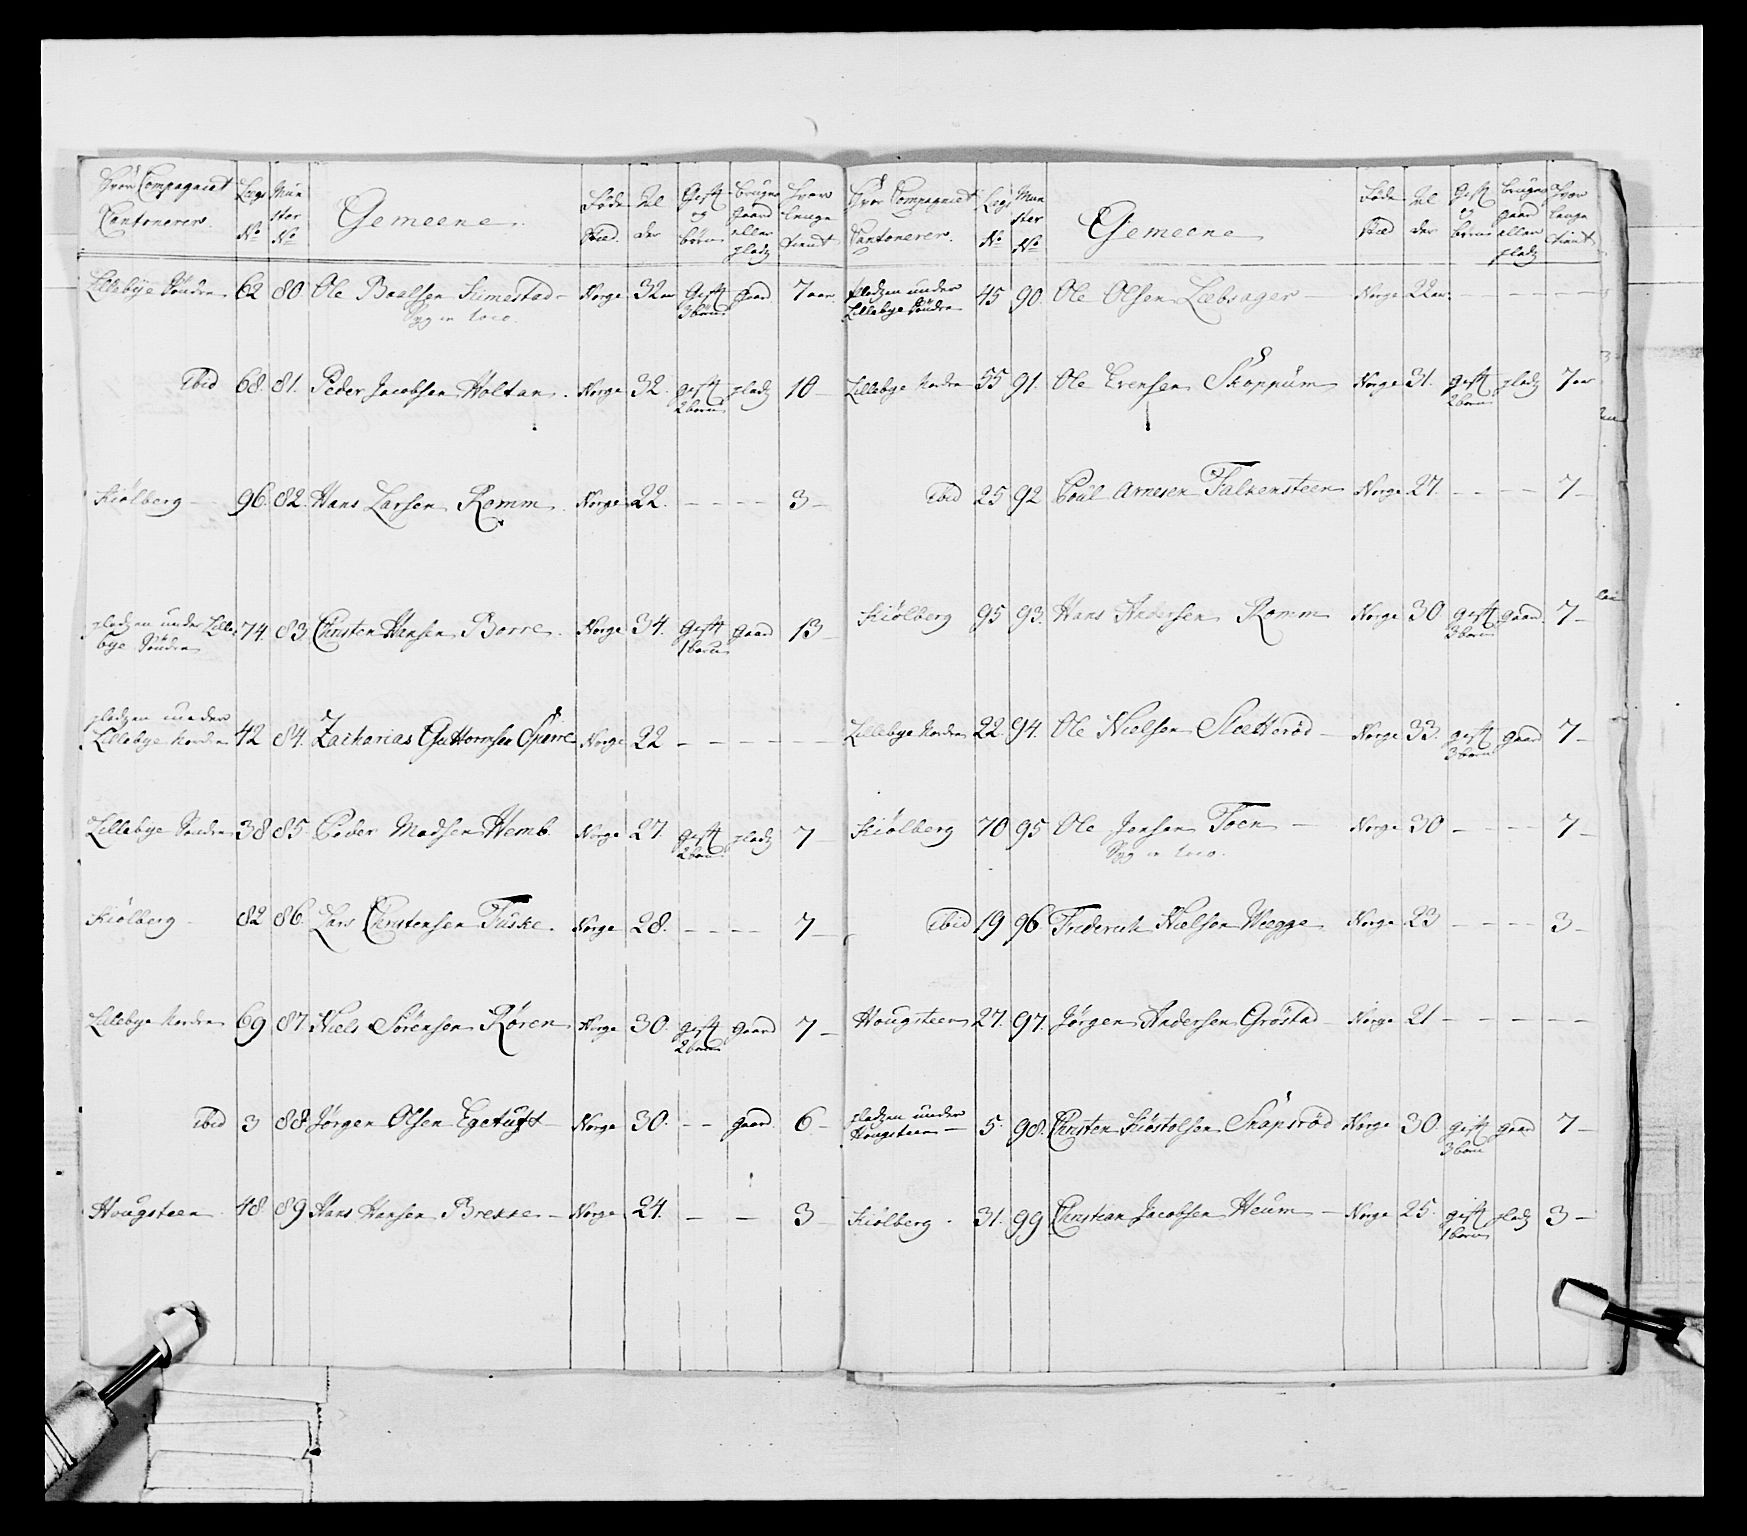 Hvor Compagniet Cantonerer. Lægs No Mun ster No Gemeene. Føde Stæd. Al der Gift og børn brugen gaard eller plads hvor længe tient
Lillebye Søndre 62 80. Ole Paalsen Kimestad Norge 32 aar Gift 3 børn gaard 7 aar.
Syg in loco.
Ibid 68. 81. Peder Jacobsen Holtan. Norge 32. gift 2 børn plads 10
Kiølberg 96. 82. Hans Larsen Ramm Norge 22. - - - - 3
pladzen under Lille bye Søndre 74. 83 Christen Hansen Borre. Norge 34. gift 1 barn gaard 13
pladzen under Lillebye Nordre 42 84. Zacharias Guttormsen Sperre Norge 22 - - - -
Lillebye Søndre 38 85. Peder Madsen Hemb. Norge 27 gift 2 børn plads 7
Kiølberg 82 86. Lars Christensen Fuske. Norge 28. - - - - 7
Lillebye Nordre 69 87. Niels Sørensen Røren Norge 30. gift 2 børn gaard 7
Ibid 3 88 Jørgen Olsen Egetuft Norge 30. - - gaard. 6
Hougsteen 48. 89 Hans Hansen Brekke Norge 24. - - 3
Hvor Compagniet Cantonerer. Lægs No Mun ster No Gemeene Føde Stæd Al der Gift og børn brugen gaard eller plads hvor længe tient
pladzen under Lillebye Søndre 45 90. Ole Olsen Læbsager Norge 22 aar. - - - -
Lillebye Nordre 55 91. Ole Evensen Skoppum Norge 31. gift 2 børn plads 7 aar
Ibid 25 92 Poul Arnesen Falkensteen Norge 27. - - - 7
Kiølberg 95 93. Hans Andersen Ramm Norge 30 gift 3 børn gaard. 7
Lillebye Nordre 22. 94. Ole Nielsen Sletterød Norge 33. gift 3 børn gaard 7
Kiølberg 70 95 Ole Jensen Foen Norge 30 - - - - 7
Syg in loco.
Ibid 19 96 Friderich Nielsen Wegge Norge 23 - - - - 3
Hougsteen 27. 97. Jørgen Andersen Grøstad Norge 21 - - - -
pladzen under Hougsteen 5. 98. Christen Kiøstolsen Skapsrød Norge 30 gift 3 børn gaard 7
Kiølberg. 31. 99 Christian Jacobsen Heum Norge 25. gift 1 barn plads 3